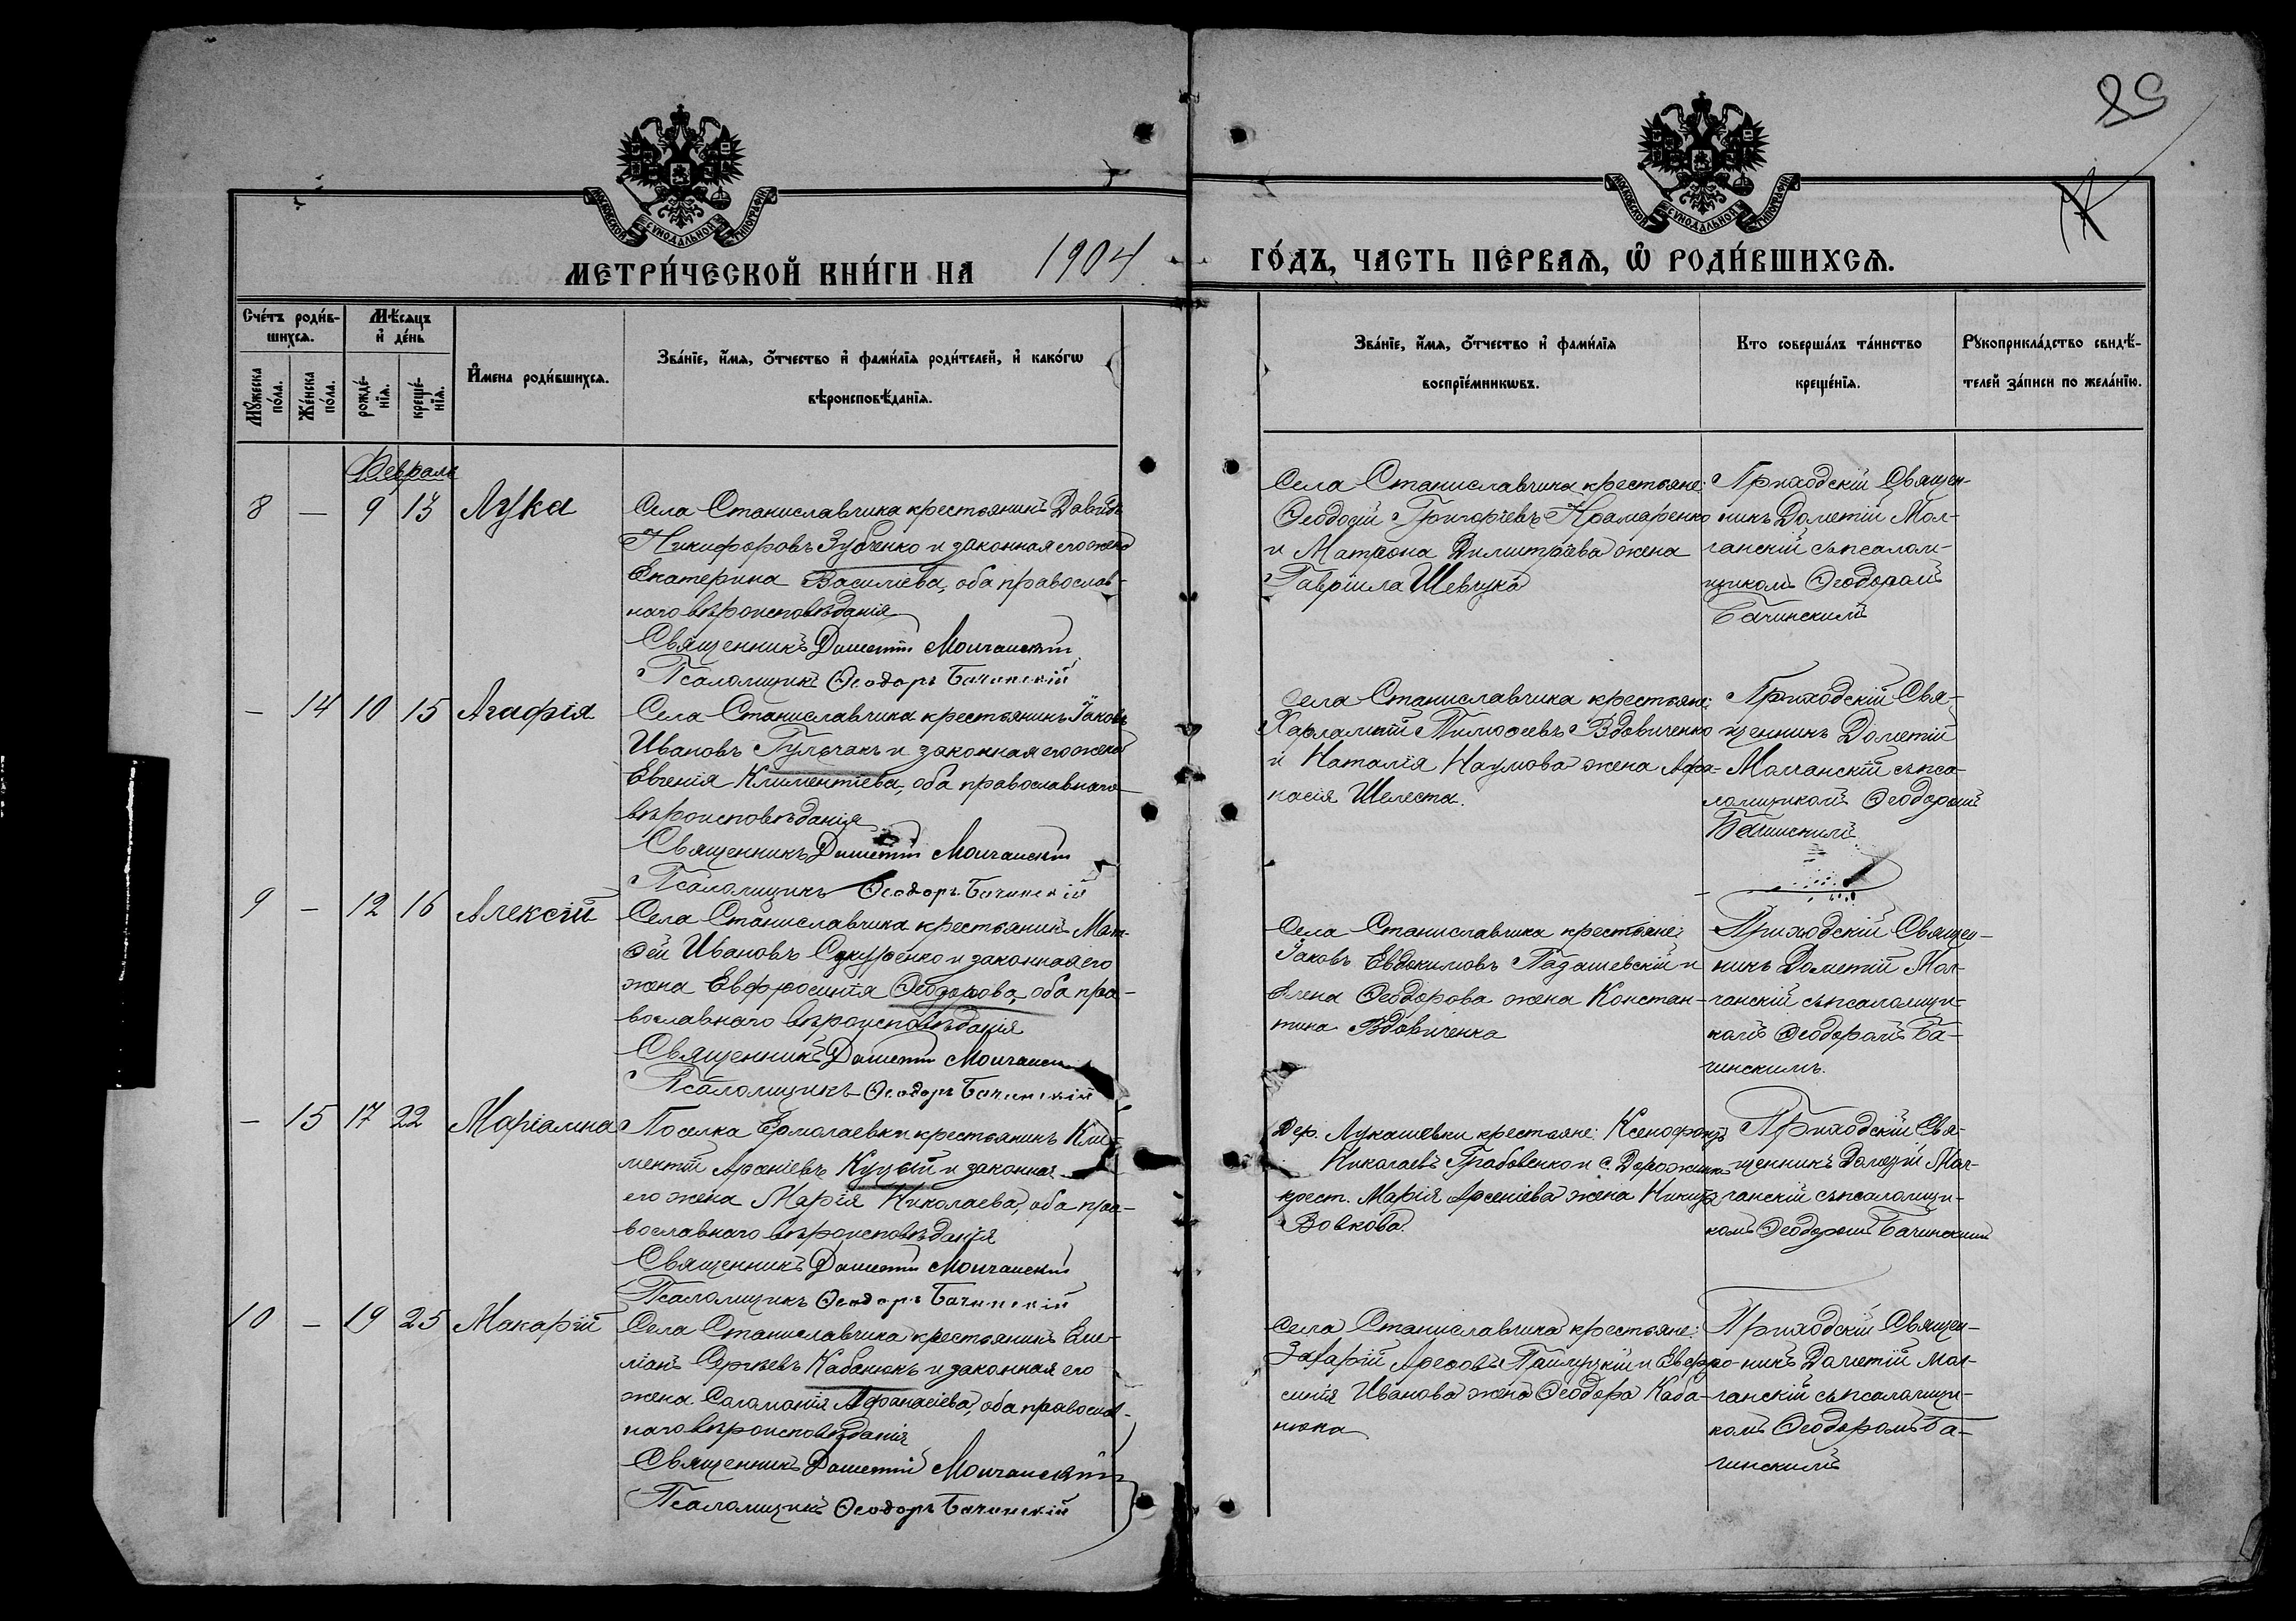 29
МОСКОВСКОЙ СѴНОДАЛЬНОЙ ТИПОГРАФІИ
МОСКОВСКОЙ СѴНОДАЛЬНОЙ ТИПОГРАФІИ
МЕТРИ́ЧЕСКОЙ КНИ́ГИ НА 1904 ГО́ДЪ, ЧАСТЬ ПЕ́РВАѦ, Ѽ РОДИ́ВШИХСѦ.
Сче́тъ роди́в-
шихсѧ.
Мѣ́сѧцъ
и҆ де́нь
Мꙋ́жеска
по́ла.
Же́нска
по́ла.
рожде́-
нїѧ.
креще́-
нїѧ.
И҆мена роди́вшихсѧ.
Зва́нїе, и҆́мѧ, ѻ҆́тчество и҆ фамѝлїѧ роди́телей, и҆ како́гѡ
вѣроисповѣ́данїѧ.
Зва́нїе, и҆́мѧ, ѻ҆́тчество и҆ фами́лїѧ
воспрїе́мникѡвъ.
Кто соверша́лъ та́инство
креще́нїѧ.
Рꙋкоприкла́дство свидѣ́-
телей за́писи по жела́нїю.
Февраль
8 — 9 13 Лука
Села Станиславчика крестьянинъ Давидъ
Никифоровъ Зубченко и законная его жена
Екатерина Василіева, оба православ-
наго вѣроисповѣданія
Священникъ Дометій Молчанскій
Псаломщикъ Ѳеодоръ Бачинскій
Села Станиславчика крестьяне:
Ѳеодосій Григоріевъ Крамаренко
и Матрона Димитріева жена
Гавріила Шевчука
Приходскій Священ-
никъ Дометій Мол-
чанскій съ псалом-
щикомъ Ѳеодоромъ
Бачинскимъ
— 14 10 15 Агафія
Села Станиславчика крестьянинъ Іаковъ
Ивановъ Гульчакъ и законная его жена
Евгенія Климентіева, оба православнаго
вѣроисповѣданія
Священникъ Дометій Молчанскій
Псаломщикъ Ѳеодоръ Бачинскій
Села Станиславчика крестьяне:
Харлампій Тимоѳеевъ Вдовиченко
и Наталія Наумова жена Афа-
насія Шелеста.
Приходскій Свя-
щенникъ Дометій
Молчанскій съ пса-
ломщикомъ Ѳеодоромъ
Бачинскимъ
9 — 12 16 Алексій
Села Станиславчика крестьянинъ Мат-
ѳей Ивановъ и законная его
жена Евфросинія Ѳеодорова, оба пра-
вославнаго вѣроисповѣданія
Священникъ Дометій Молчанскій
Псаломщикъ Ѳеодоръ Бачинскій
Села Станиславчика крестьяне:
Іаковъ Евдокимовъ и
Елена Ѳеодорова жена Констан-
тина Вдовиченка
Приходскій Священ-
никъ Дометій Мол-
чанскій съ псаломщи-
комъ Ѳеодоромъ Ба-
чинскимъ.
— 15 17 22 Маріамна
Поселка Ермолаевки крестьянинъ Кли-
ментій и законная
его жена Марія Николаева, оба пра-
вославнаго вѣроисповѣданія
Священникъ Дометій Молчанскій
Псаломщикъ Ѳеодоръ Бачинскій
Дер. Лукашевки крестьяне: Ксенофонтъ
Николаевъ Грабовенко и с.
крест. Марія Арсеніева жена Никиты
Вовкова.
Приходскій Свя-
щенникъ Дометій Мол-
чанскій съ псаломщи-
комъ Ѳеодоромъ Бачинскимъ
10 — 19 25 Макарій
Села Станиславчика крестьянинъ Еме-
ліанъ Сергѣевъ Кабанюкъ и законная его
жена Саломонія Афанасіева, оба православ-
наго вѣроисповѣданія
Священникъ Дометій Молчанскій
Псаломщикъ Ѳеодоръ Бачинскій
Села Станиславчика крестьяне:
Захарій и Евфро-
синія Иванова жена Ѳеодора Каба-
нюка
Приходскій Священ-
никъ Дометій Мол-
чанскій съ псаломщи-
комъ Ѳеодоромъ Ба-
чинскимъ